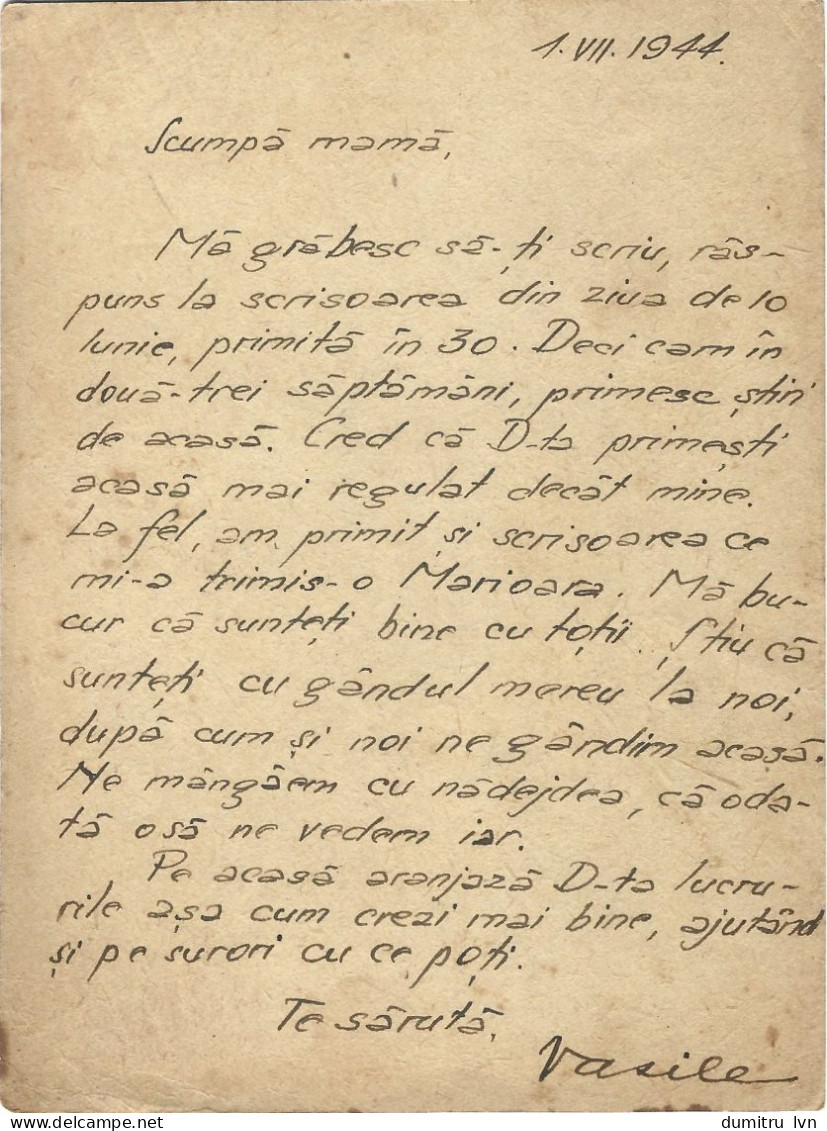 1. VII. 1944.
Scumpă mamă,
Mă grăbesc să-ți scriu, răs-
puns la scrisoarea din ziua de 10
Iunie, primită în 30. Deci cam în
două-trei săptămâni, primesc știri
de acasă. Cred că D-ta primești
acasă mai regulat decât mine.
La fel, am primit și scrisoarea ce
mi-a trimis-o Marioara. Mă bu-
cur că sunteți bine cu toții. Știu că
sunteți cu gândul mereu la noi,
după cum și noi ne gândim acasă.
Ne mângâem cu nădejdea, că oda-
tă o să ne vedem iar.
Pe acasă aranjază D-ta lucru-
rile așa cum crezi mai bine, ajutând
și pe surori cu ce poți.
Te sărută,
Vasile
dumitru lvn